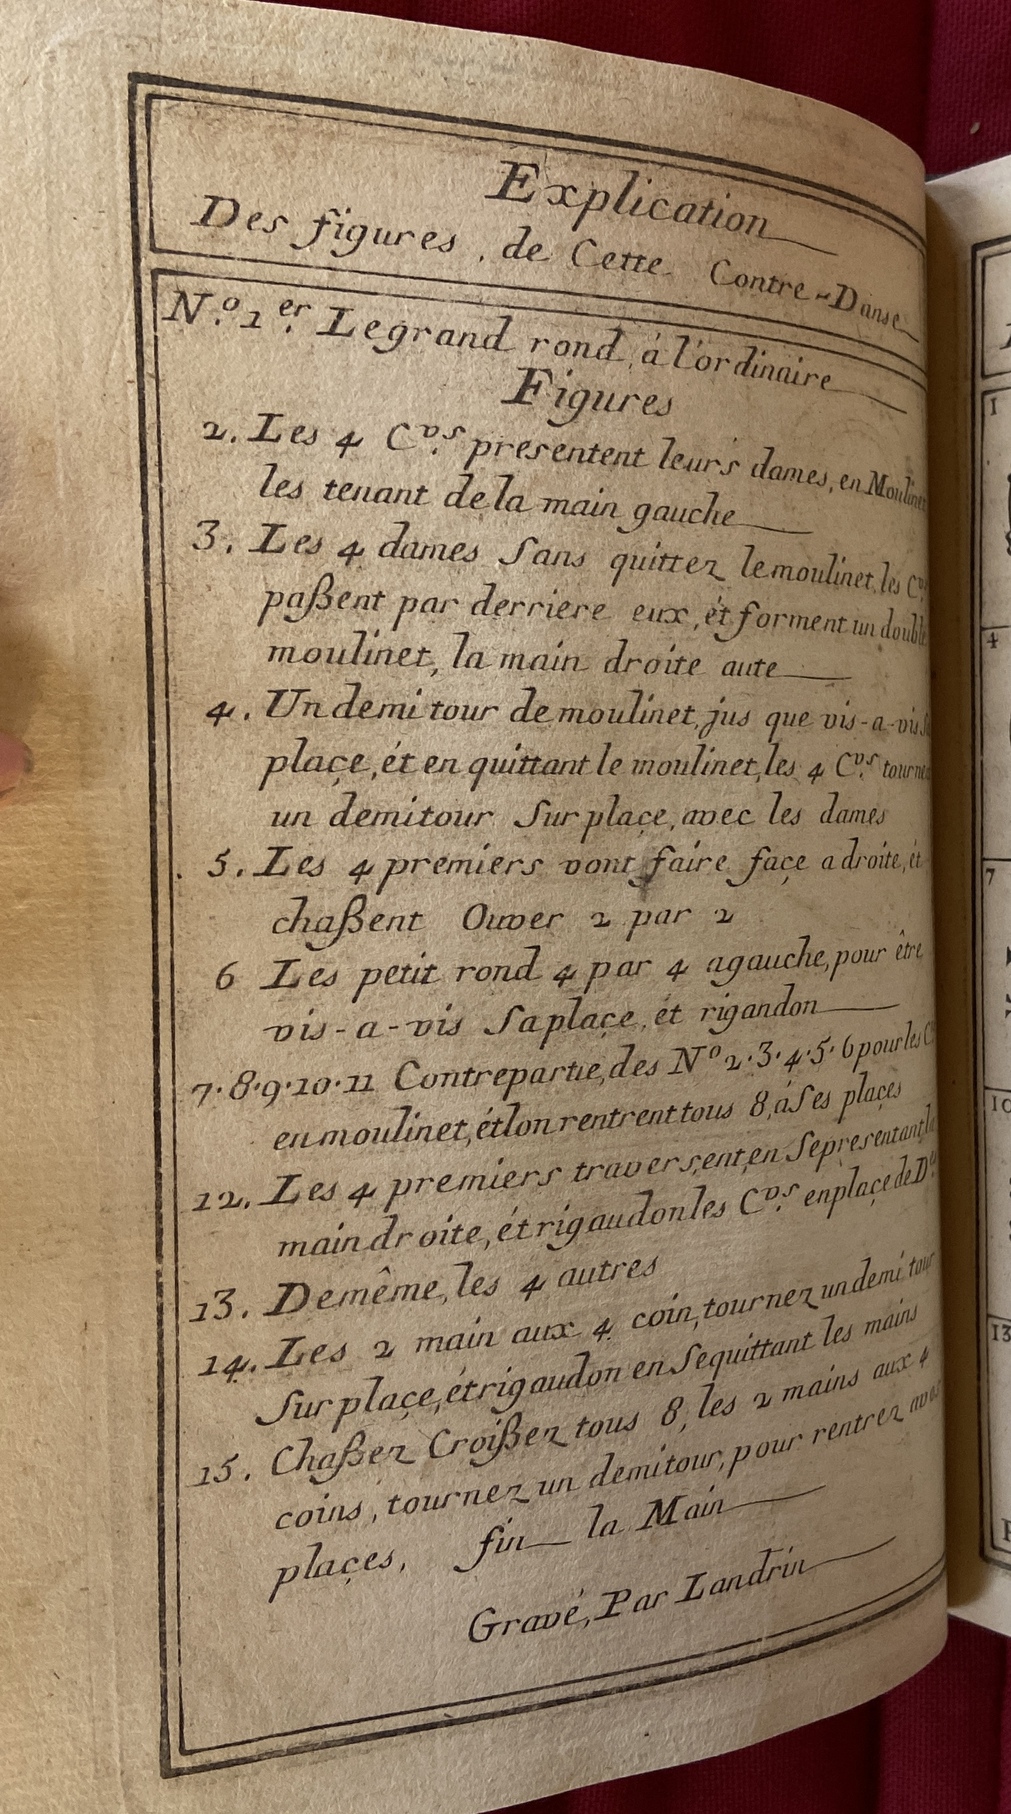 Explication
Des figures, de Cette Contre-Danse
N.º 1.er Legrand rond, á l'ordinaire
Figures
2. Les 4 C.vs presentent leurs dames, en Moulinet
les tenant dela main gauche
3. Les 4 dames Sans quittez lemoulinet, les C.vs
paßent par derriere eux, ét forment un double
moulinet, la main droite aute
4. Un demi tour de moulinet, jus que vis-a-vis Sa
plaçe, ét en quittant le moulinet, les 4 C.vs tournent
un demitour Sur plaçe, avec les dames
5. Les 4 premiers vont faire façe a droite, ét
chaßent Ouver 2 par 2
6 Les petit rond 4 par 4 agauche, pour être
vis-a-vis Saplaçe, ét rigandon
7·8·9·10·11 Contrepartie, des Nº 2·3·4·5·6 pour les
en moulinet, étlon rentrent tous 8, á Ses plaçes
12. Les 4 premiers traversent, en Sepresentant, la
main droite, ét rigaudon les C.vs en plaçe de D.es
13. Demême, les 4 autres
14. Les 2 main aux 4 coin, tournez un demi tour
Sur plaçe, ét rigaudon en Sequittant les mains
15. Chaßez Croißez tous 8, les 2 mains aux 4
coins, tournez un demitour, pour rentrez avos
plaçes, fin la Main
Gravé, Par Landrin
1
4
7
10
13